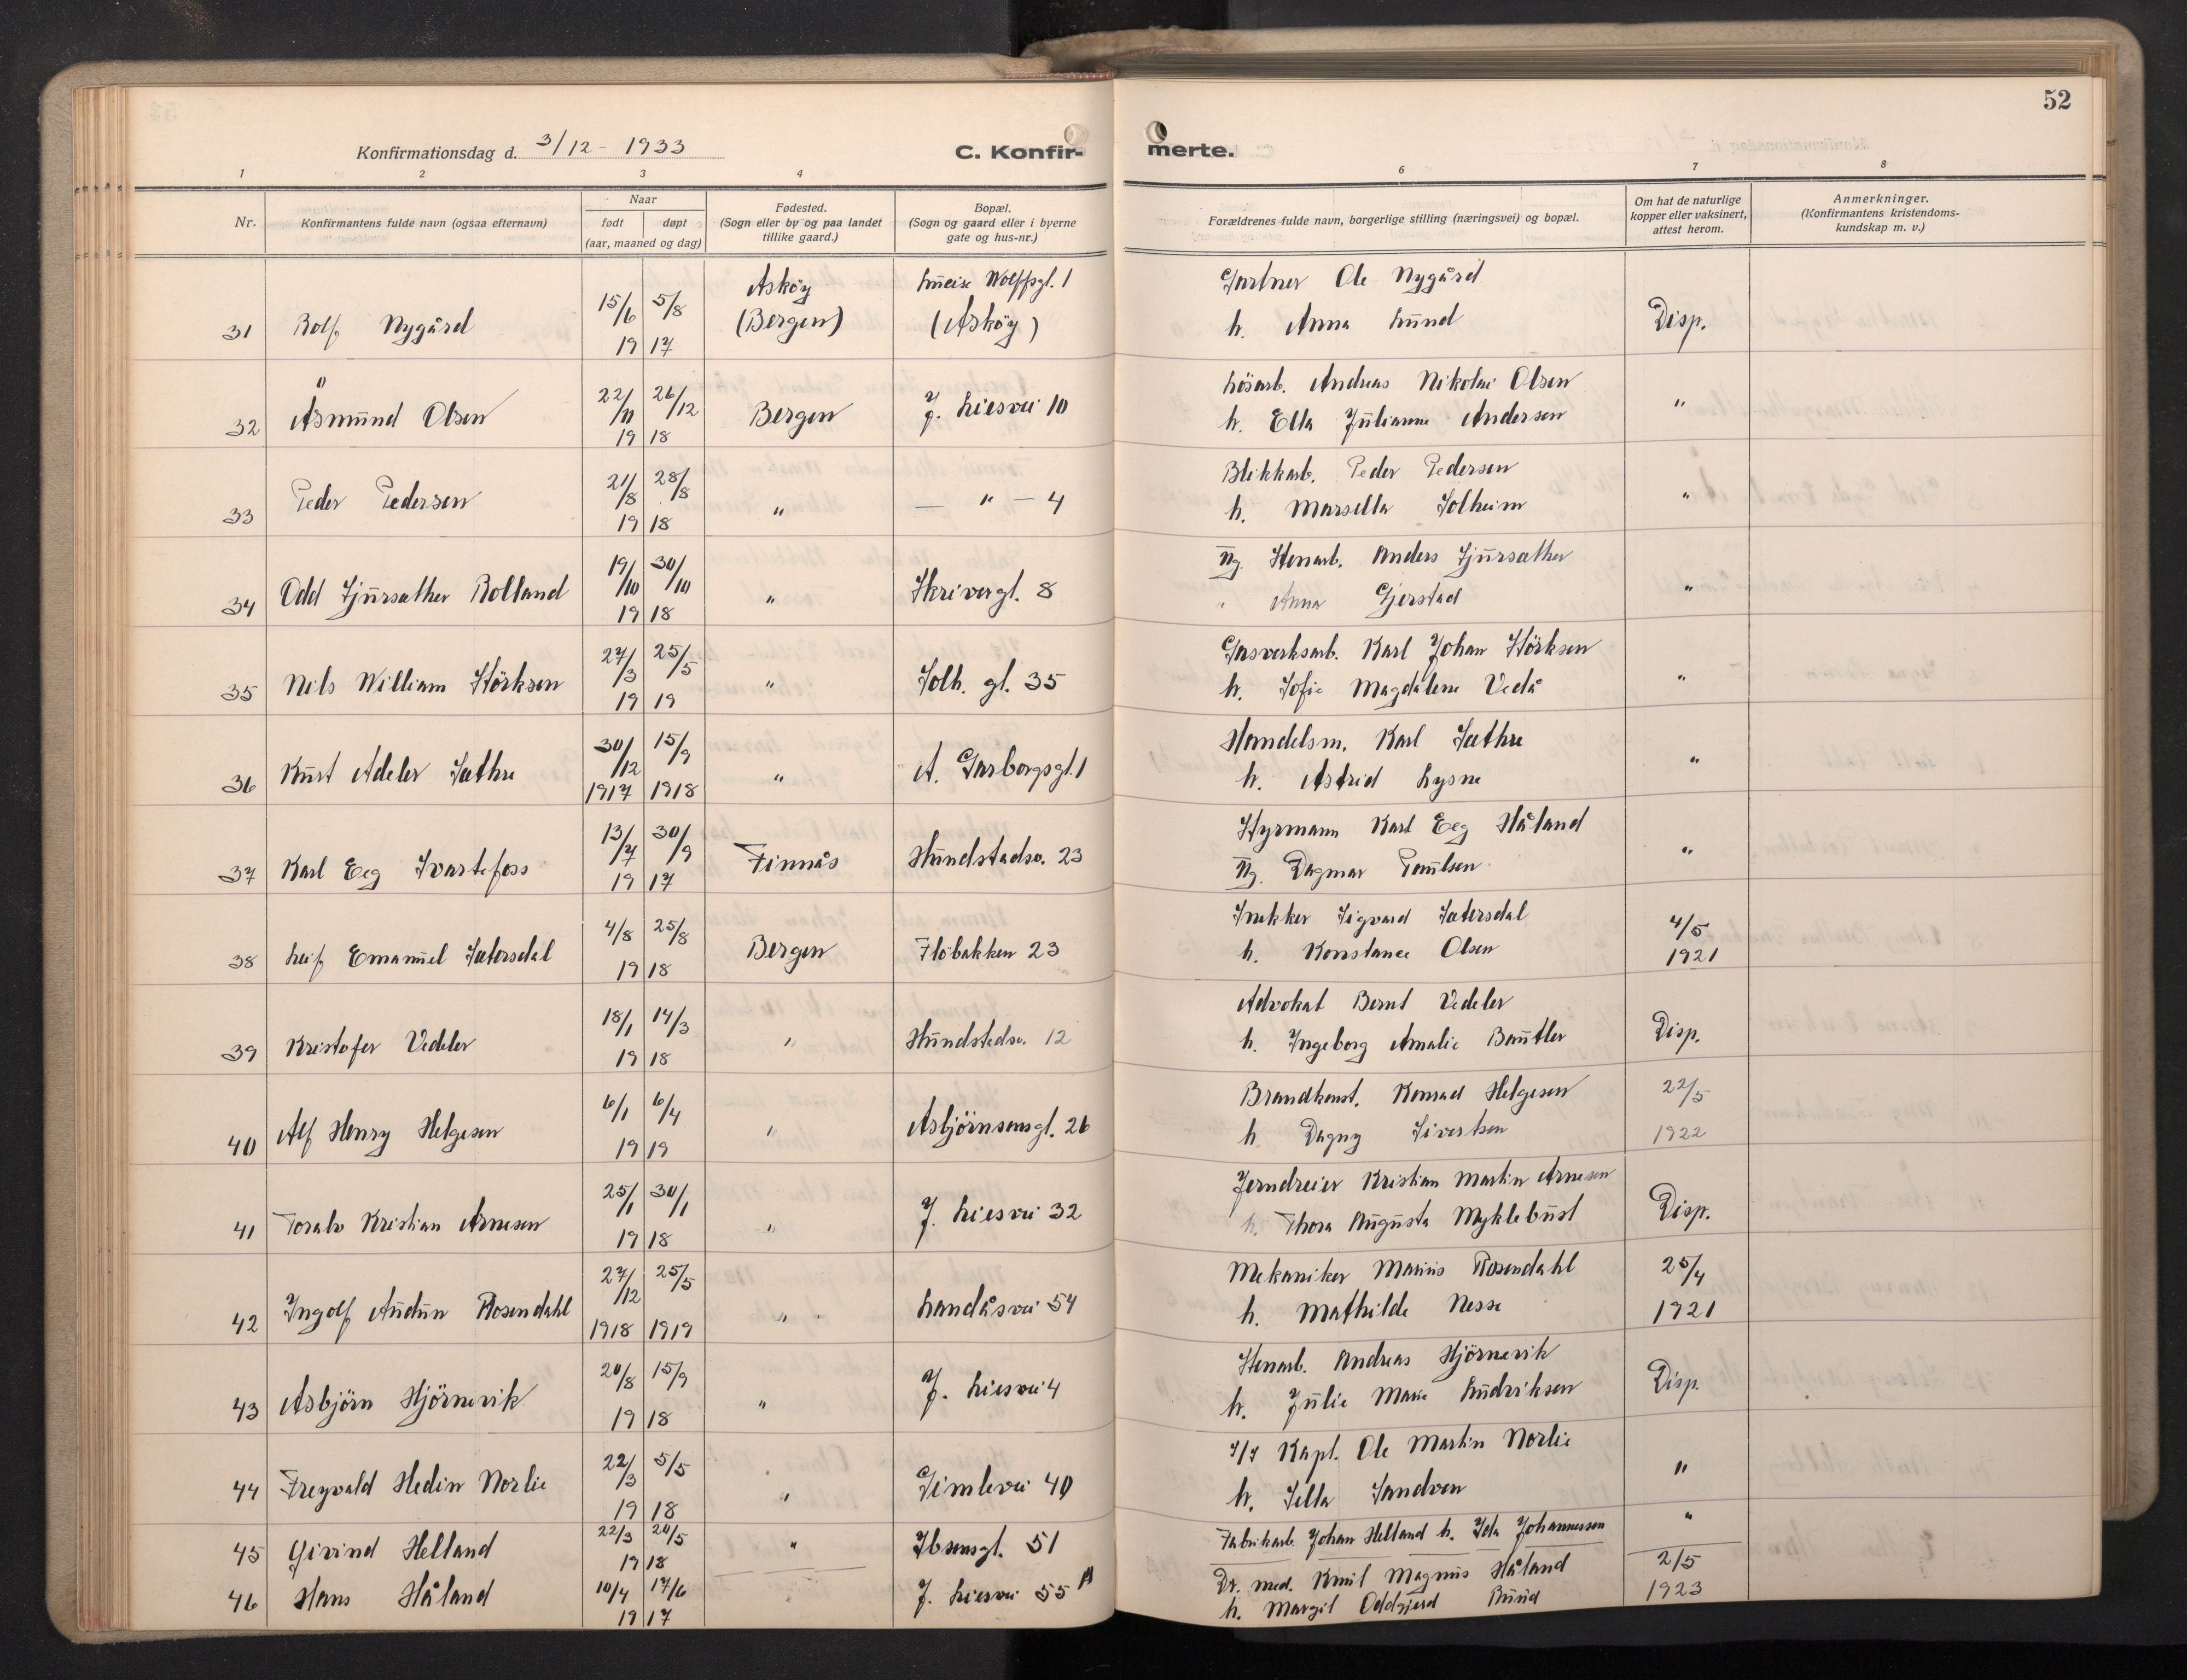 52
Konfirmationsdag d. 3/12 - 1933
C. Konfir-
merte.
1 2 3 4 6 7 8
Nr.
Konfirmantens fulde navn (ogsaa efternavn)
Naar
født døpt
(aar, maaned og dag)
Fødested.
(Sogn eller by og paa landet
tillike gaard.)
Bopæl.
(Sogn og gaard eller i byerne
gate og hus-nr.)
Forældrenes fulde navn, borgerlige stilling (næringsvei) og bopæl.
Om hat de naturlige
kopper eller vaksinert,
attest herom.
Anmerkninger.
(Konfirmantens kristendoms-
kundskap m. v.)
Askøy Wolffsgl. 1 Gartner Ole Nygård
31 Rolf Nygård 15/6 5/8 (Bergen) (Askøy) h. Anna Lund Disp.
19 17
Lösarb. Andreas Nikolai Olsen
32 Åsmund Olsen 22/11 26/12 Bergen J. Liesvei 10 h. Ella Julianne Andersen "
19 18
Blikkarb. Peder Pedersen
33 Peder Pedersen 21/8 28/8 " — " — 4 h. Marsella Solheim "
19 18
Ug. Stenarb. Anders Sjursæther
34 Odd Sjursæther Rolland 19/10 30/10 " Skrivergl. 8 " Anna Gjerstad "
19 18
Gasverksarb. Karl Johan Störksen
35 Nils William Störksen 27/3 25/5 " Solh. gl. 35 h. Sofie Magdalene Vedå "
19 19
Handelsm. Karl Sæthre
36 Kurt Adeler Sæthre 30/12 15/9 " A. Garborgsgl. 1 h. Astrid Lysne "
1917 1918
Styrmann Karl Eeg Håland
37 Karl Eeg Svartefoss 13/7 30/9 Finnås Hundstadsv. 23 Ug. Dagmar Paulsen "
19 17
Snekker Sigvard Sætersdal 4/5
38 Leif Emanuel Sætersdal 4/8 25/8 Bergen Flöbakken 23 h. Konstance Olsen 1921
19 18
Advokat Bernt Vedeler
39 Kristofer Vedeler 18/1 14/3 " Hundstedsv. 12 h. Ingeborg Amalie Bautler Disp.
19 18
Brandkonst. Konrad Helgesen 22/5
40 Alf Henry Helgesen 6/1 6/4 " Asbjörnsensgl. 26 h. Dagny Sivertsen 1922
19 19
Jerndreier Kristian Martin Arnesen
41 Toralv Kristian Arnesen 25/1 30/1 " J. Liesvei 32 h. Thora Augusta Myklebust Disp.
19 18
Mekaniker Marius Rosendahl 25/4
42 Ingolf Audun Rosendahl 27/12 25/5 " Landåsvei 54 h. Mathilde Nesse 1921
1918 1919
Stenarb. Andreas Hjörnevik
43 Asbjörn Hjörnevik 20/8 15/9 " J. Liesvei 4 h. Julie Marie Ludviksen Disp.
19 18
S/S Kapt. Ole Martin Norlie
44 Freyvald Hedin Norlie 22/3 5/5 " Gimlevei 40 h. Silla Sandven "
19 18
45 Öivind Helland 22/3 20/5 " Ibsensgl. 51 Fabrikarb. Johan Helland h. Ida Johannessen "
19 18
46 Hans Håland 10/4 17/6 J. Liesvei 55 A Dr. med. Emil Magnus Håland 2/5
19 17 h. Margit Oddgjerd Ruud 1923